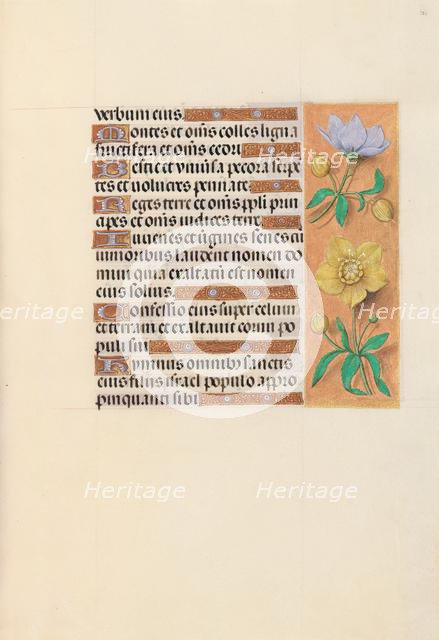 verbum eius.
Montes et om̄s colles ligna
fructifera et om̄s cedri.
Bestie et vniuersa pecora serpē
tes et volucres pennate.
Reges terre et om̄s ppli prin
cipes et om̄s iudices terre.
Iuuenes et ȗgines senes cū
iunioribus laudent nomen do
mini quia exaltatū est nomen
eius solius.
Confessio eius super celum
et terram et exaltauit cornu po
puli sui
Hymnus omnibȝ sanctis
eius filiis israel populo appro
pinquanti sibi.
Heritage Heritage
Heritage Heritage
Heritage Heritage